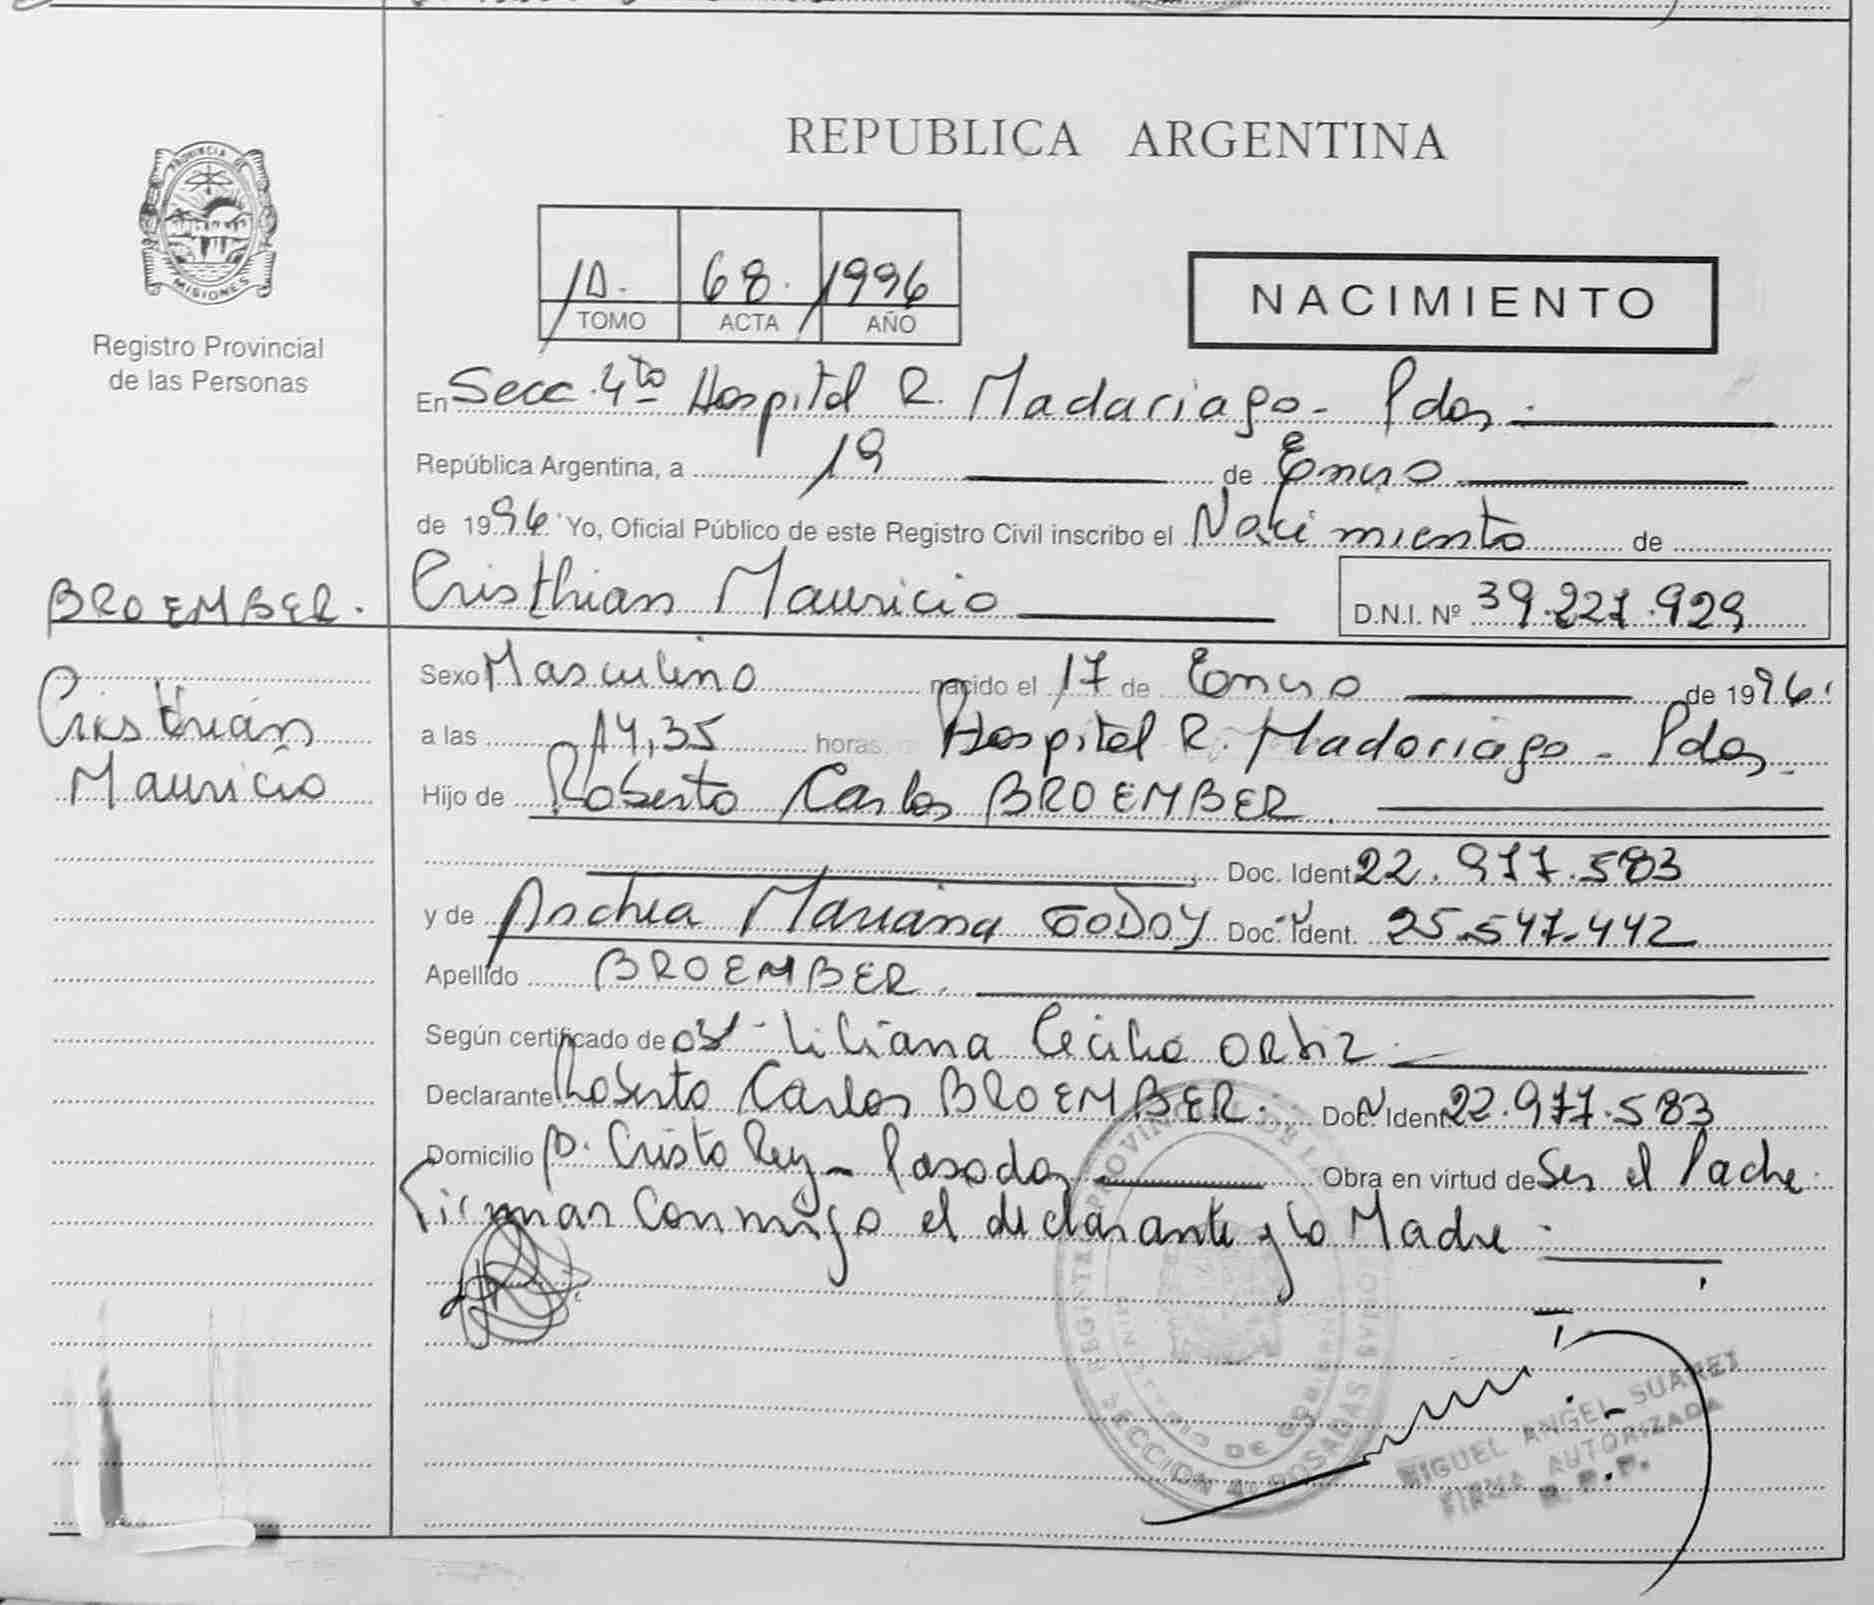 REPUBLICA ARGENTINA
PROVINCIA DE
MISIONES
Registro Provincial
de las Personas
1D. 68. 1996
TOMO ACTA AÑO
NACIMIENTO
En Secc. 4to Hospital R. Madariaga - Pdas.
República Argentina, a 19 de Enero
de 1996 Yo, Oficial Público de este Registro Civil inscribo el Nacimiento de
BROEMBER. Cristhian Mauricio D.N.I. Nº 39.227.929
Cristhian
Mauricio
Sexo Masculino nacido el 17 de Enero de 1996.
a las 14,35 horas Hospital R. Madariaga - Pdas.
Hijo de Roberto Carlos BROEMBER.
Doc. Ident 22.977.583
y de Andrea Mariana GODOY Doc. Ident. 25.547.442
Apellido BROEMBER.
Según certificado de Liliana Cecilia ORtiz
Declarante Roberto Carlos BROEMBER. Doc. Ident 22.977.583
Domicilio B. Cristo Rey - Posadas Obra en virtud de Ser el Padre.
Firman conmigo el declarante y la Madre.
MIGUEL ANGEL SUAREZ
FIRMA AUTORIZADA
R.P.P.
SECCION 4 POSADAS